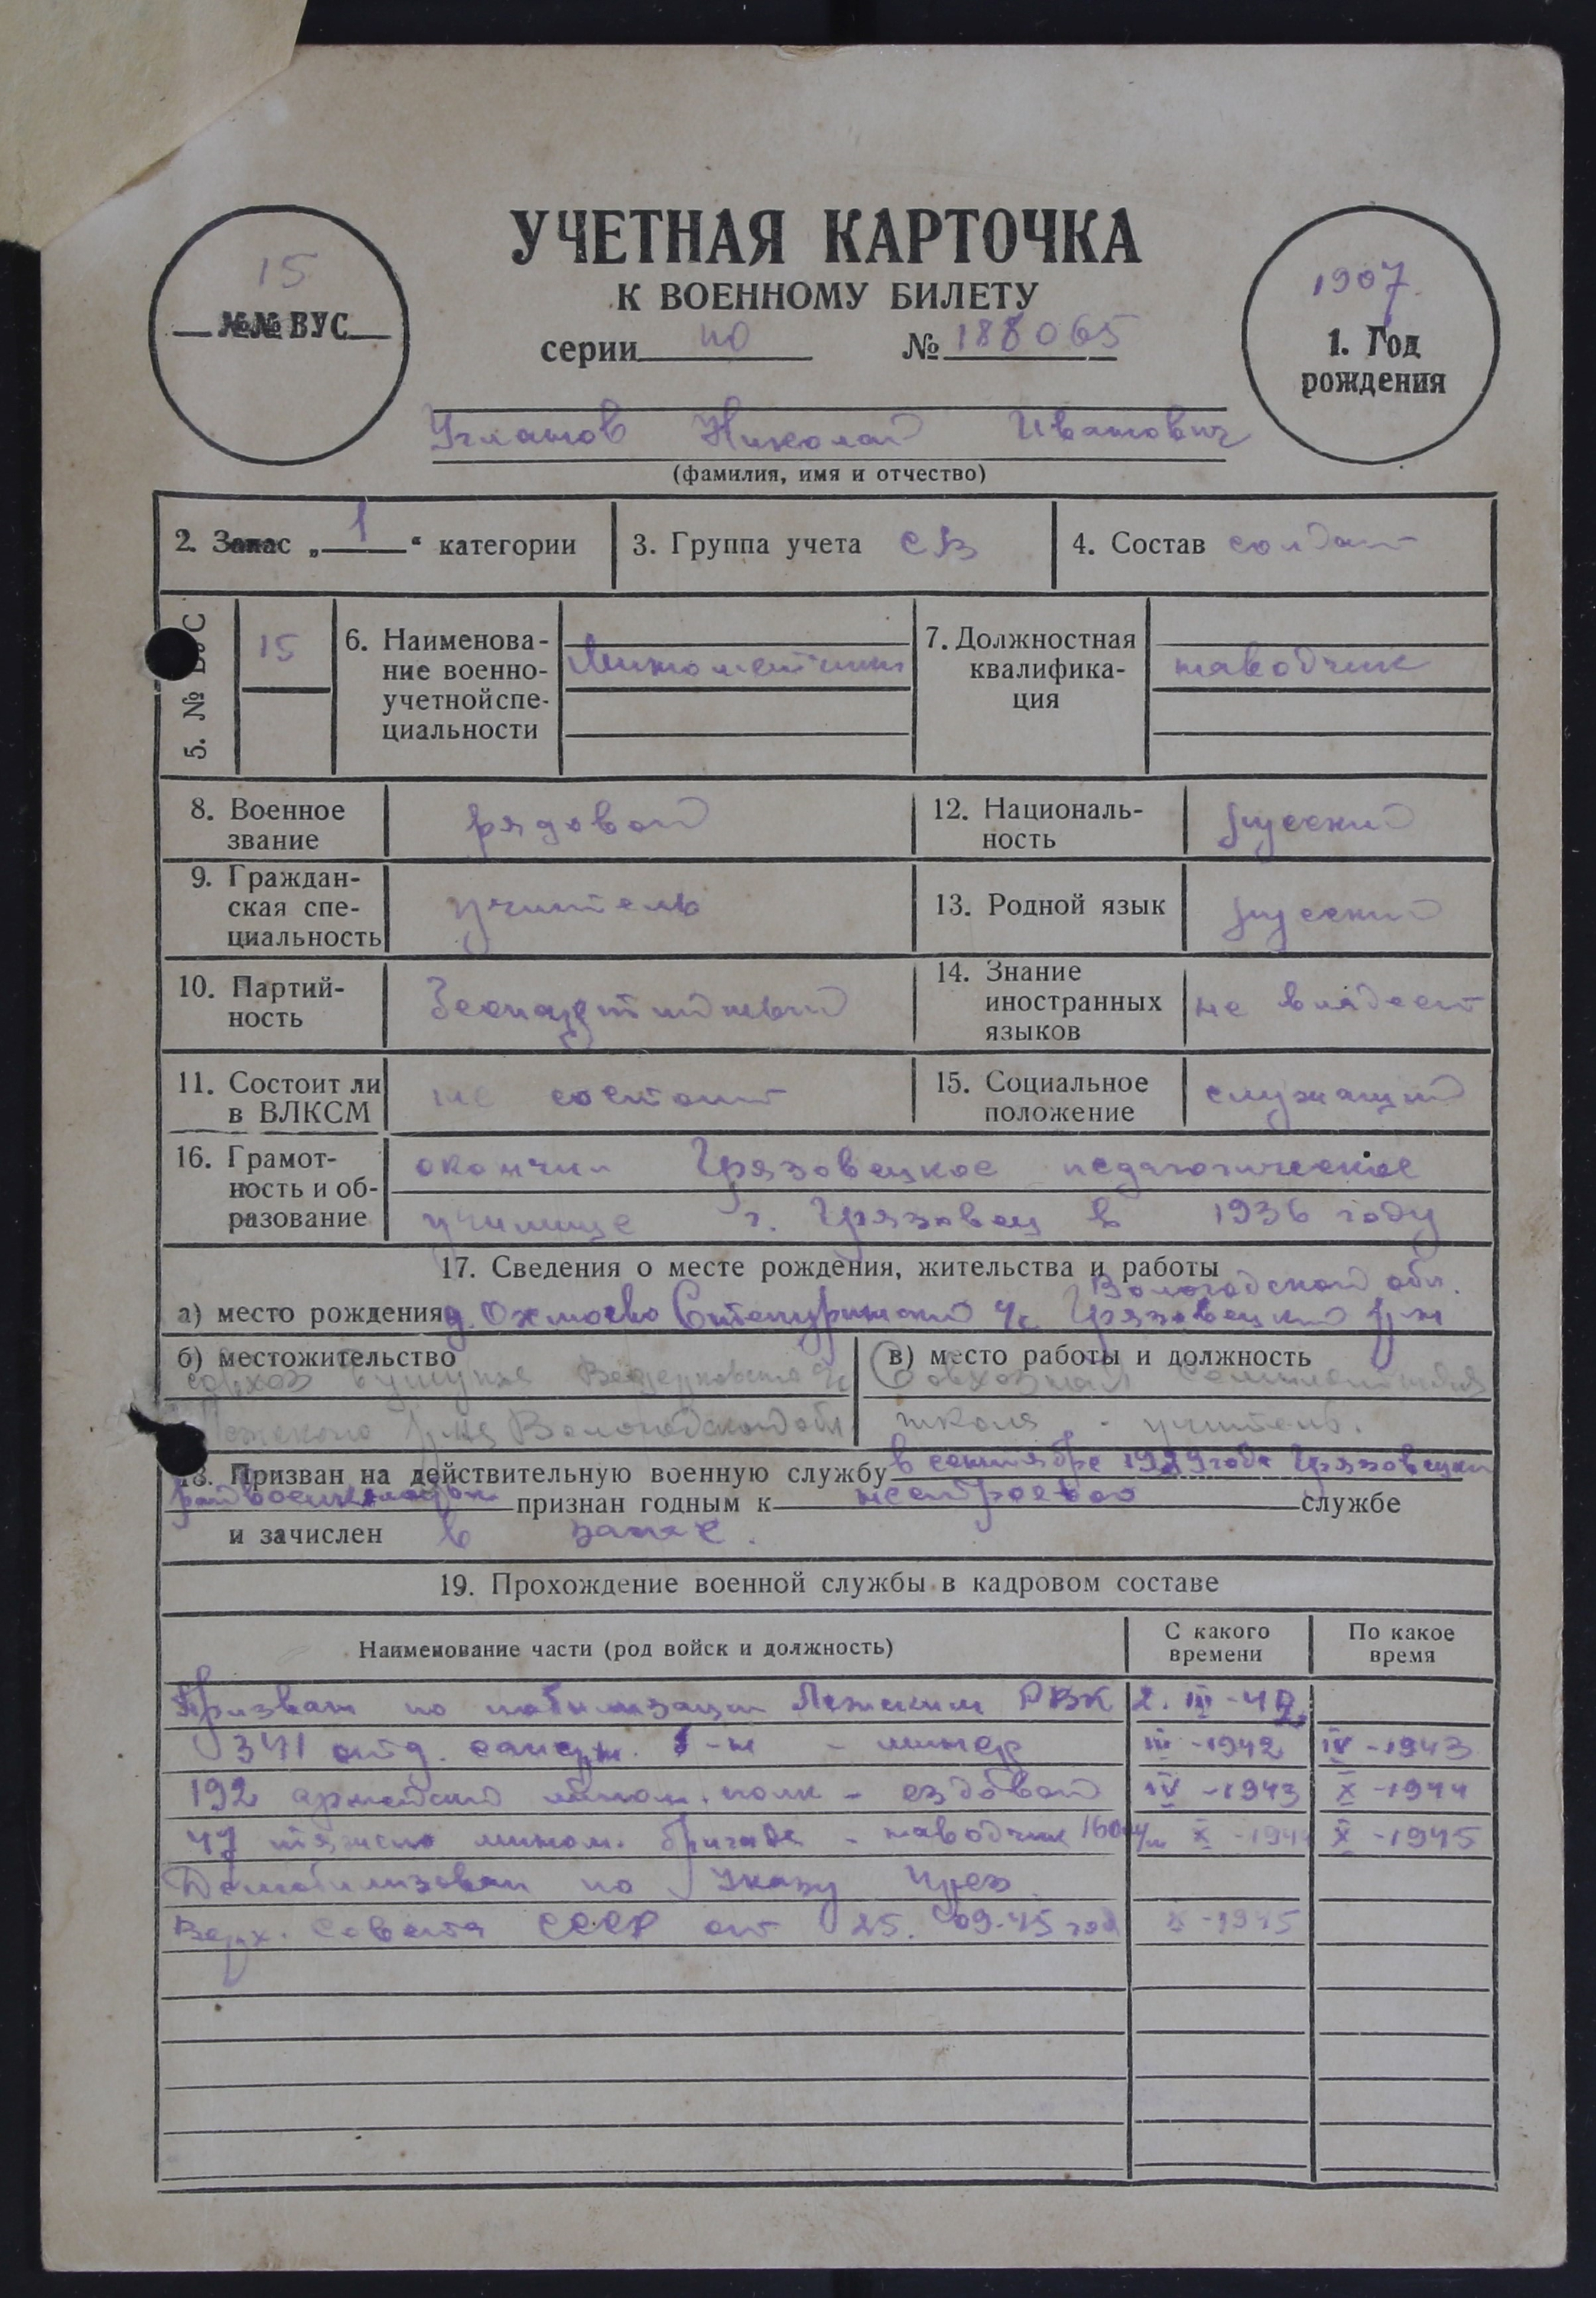 УЧЕТНАЯ КАРТОЧКА
К ВОЕННОМУ БИЛЕТУ
серии НО № 188065
15
№№ ВУС
1907.
1. Год
рождения
Угланов Николай Иванович
(фамилия, имя и отчество)
2. Запас „ 1 “ категории
3. Группа учета СВ
4. Состав солдат
5. № ВУС
15
6. Наименова-
ние военно-
учетной спе-
циальности
Минометчик
7. Должностная
квалифика-
ция
наводчик
8. Военное
звание
рядовой
12. Националь-
ность
русский
9. Граждан-
ская спе-
циальность
учитель
13. Родной язык
русский
10. Партий-
ность
Беспартийный
14. Знание
иностранных
языков
не владеет
11. Состоит ли
в ВЛКСМ
не состоит
15. Социальное
положение
служащий
16. Грамот-
ность и об-
разование
окончил Грязовецкое педагогическое
училище г. Грязовец в 1936 году
17. Сведения о месте рождения, жительства и работы
Вологодской обл.
а) место рождения д. Грязовецкий р-н
б) местожительство
совхоз
Лежского р-на Вологодской обл
в) место работы и должность
Совхозная Семилетняя
школа - учитель.
18. Призван на действительную военную службу в сентябре 1929 года Грязовецким
райвоенкоматом признан годным к нестроевой службе
и зачислен в запас.
19. Прохождение военной службы в кадровом составе
Наименование части (род войск и должность)
С какого
времени
По какое
время
Призван по мобилизации Лежским РВК 2. III-42.
341 отд. б-н - минер III-1942 IV-1943
192 армейский мином. полк - ездовой IV-1943 X-1944
47 тяжело мином. бригада - наводчик 160 м/м X-1944 X-1945
Демобилизован по Указу През.
Верх. Совета СССР от 25.09.45 год X-1945